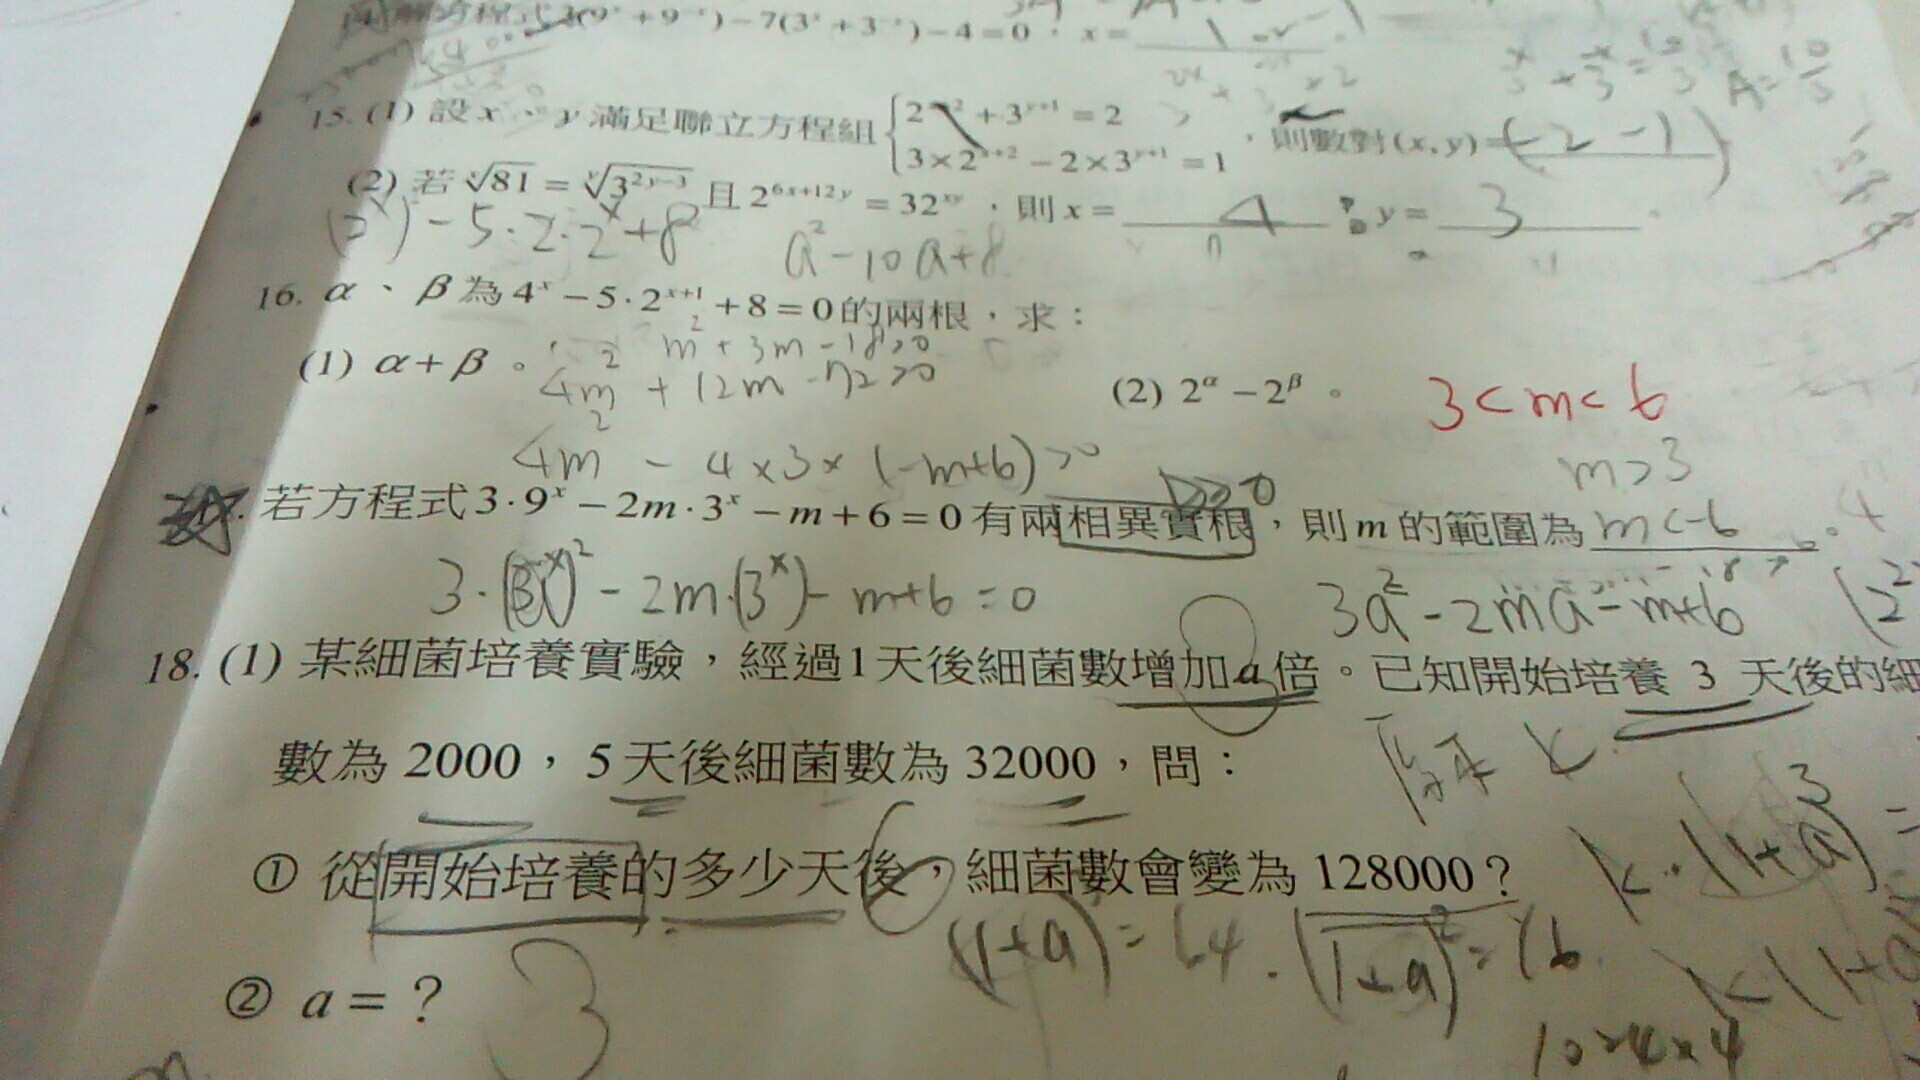 解方程式3(9ˣ+9⁻ˣ)−7(3ˣ+3⁻ˣ)−4=0,x=
15. (1) 設x、y滿足聯立方程組 2ˣ⁺²+3ʸ⁺¹=2
3×2ˣ⁺²−2×3ʸ⁺¹=1 ,則數對(x, y)= (-2 -1)
(2) 若 ˣ√81 = ʸ√3²ʸ⁻³ 且 2⁶ˣ⁺¹²ʸ=32ˣʸ,則x= 4 ;y= 3 。
(2ˣ) - 5·2·2ˣ+8 a²-10a+8
16. α、β為4ˣ−5·2ˣ⁺¹+8=0的兩根,求:
m²+3m-18>0
(1) α+β。 4m²+12m-72>0 (2) 2^α−2^β。 3<m<6
4m²-4×3×(-m+6)>0 m>3
D>0
17. 若方程式3·9ˣ−2m·3ˣ−m+6=0有兩相異實根,則m的範圍為 m<-6 。
3·(3ˣ)²-2m·(3ˣ)-m+6=0 3a²-2ma-m+6
18. (1) 某細菌培養實驗,經過1天後細菌數增加a倍。已知開始培養 3 天後的細
數為 2000,5天後細菌數為 32000,問:
原本 k
k·(1+a)³=
① 從開始培養的多少天後,細菌數會變為 128000? 6
(1+a)³=64 (1+a)²=16
② a=? 3
k(1+a)
10×4×4